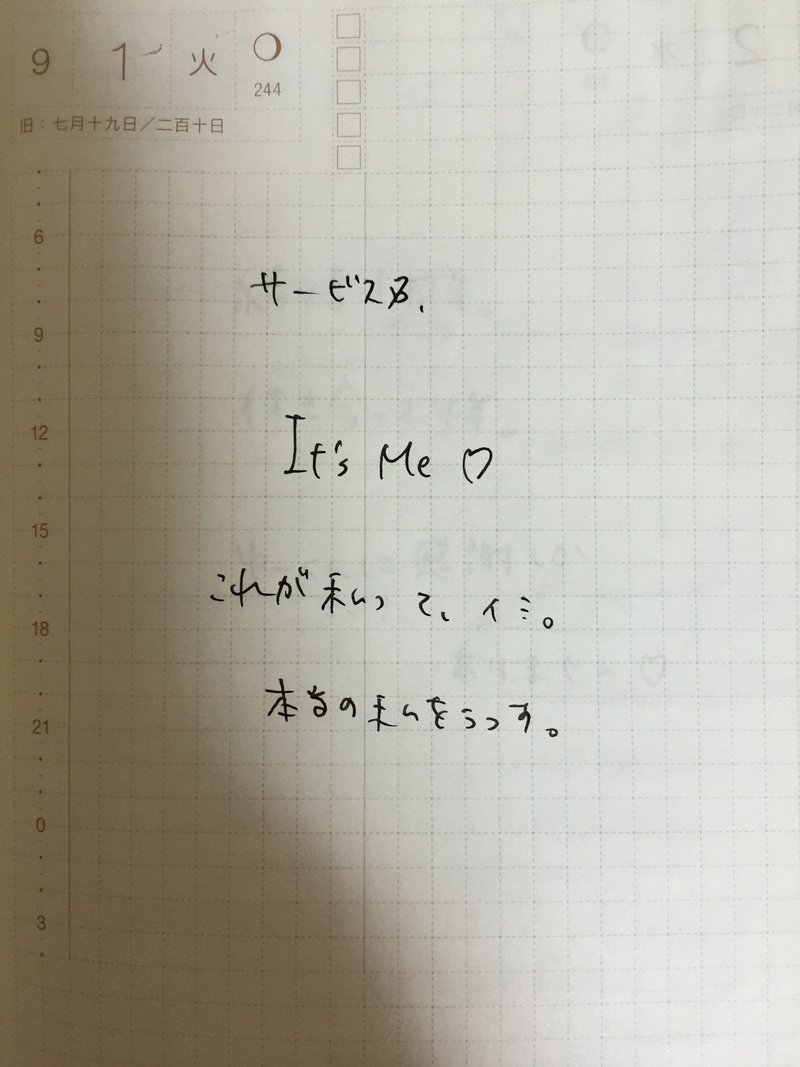 9 1 火
244
旧:七月十九日/二百十日
6
9
12
15
18
21
0
3
サービス名.
It's Me ♡
これが私って、イミ。
本当の私をうつす。
2 水